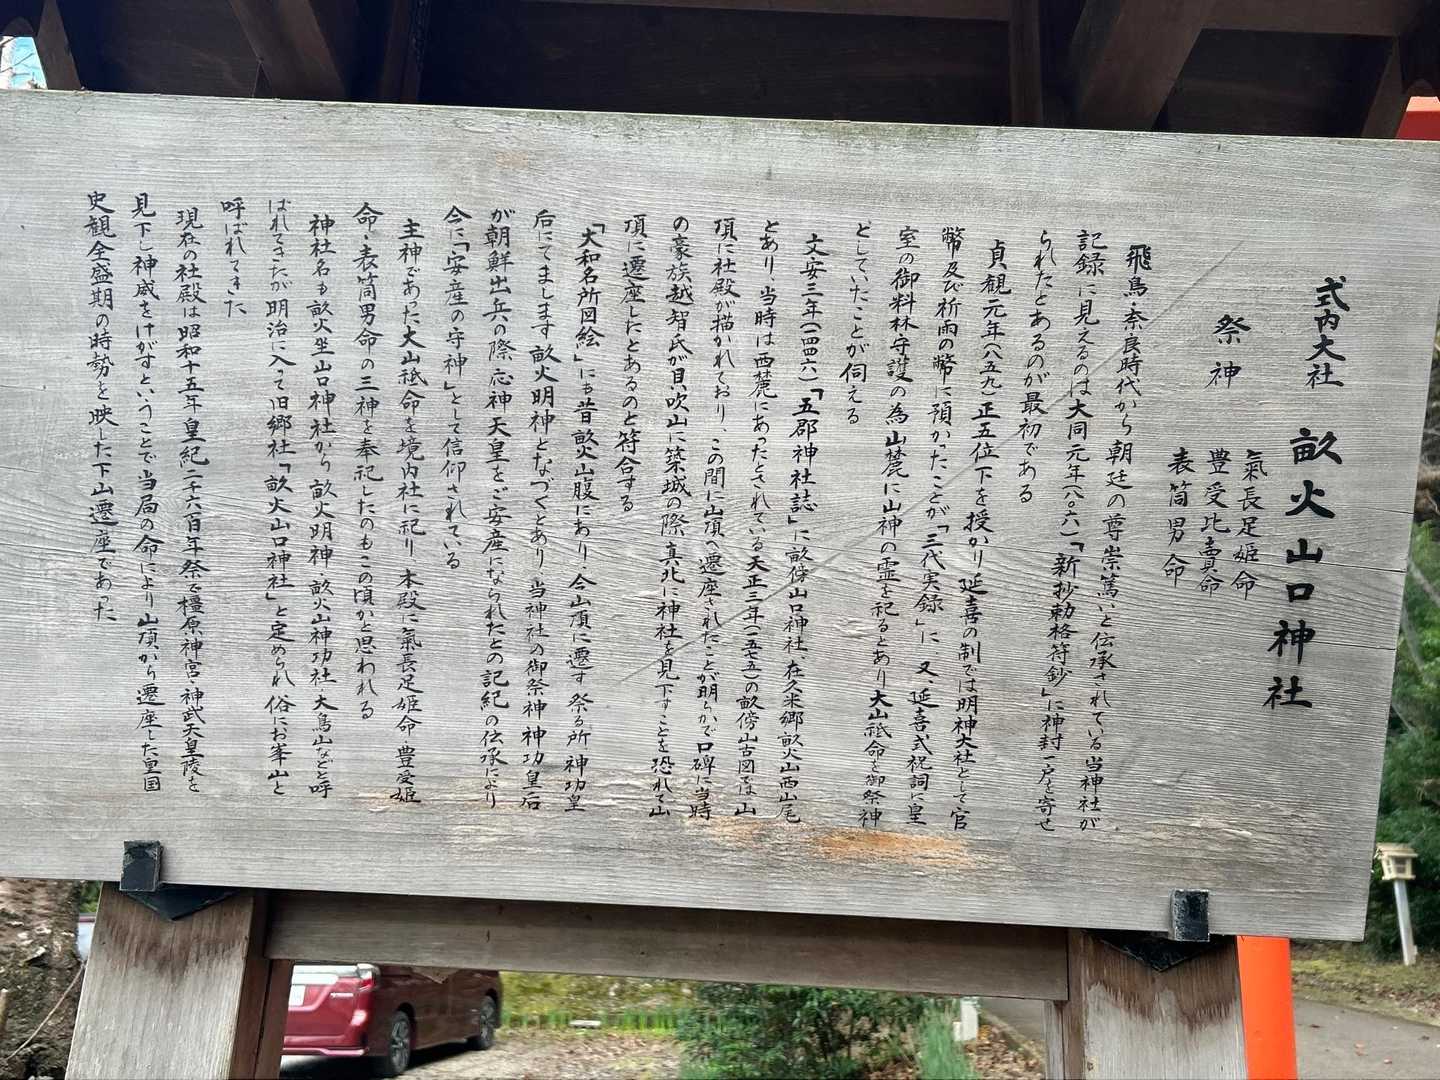 式内大社 畝火山口神社
祭神
氣長足姫命
豊受比賣命
表筒男命
飛鳥・奈良時代から 朝廷の尊崇篤いと伝承されている当神社が
記録に見えるのは大同元年(八〇六)「新抄勅格符鈔」に神封一戸を寄せ
られたとあるのが最初である
貞観元年(八五九)正五位下を授かり 延喜の制では明神大社として官
幣及び祈雨の幣に預かったことが「三代実録」に 又、延喜式祝詞に皇
室の御料林守護の為山麓に山神の霊を祀るとあり大山祇命を御祭神
としていたことが伺える
文安三年(一四四六)「五郡神社誌」に畝傍山口神社、在久米郷畝火山西山尾
とあり、当時は西麓にあったとされている天正三年(一五七五)の畝傍山古図では山
頂に社殿が描かれており、この間に山頂へ遷座されたことが明らかで口碑に当時
の豪族越智氏が貝吹山に築城の際 真北に神社を見下すことを恐れて山
頂に遷座したとあるのと符合する
「大和名所図絵」にも昔畝火山腹にあり、今山頂に遷す 祭る所 神功皇
后にてまします畝火明神となづくとあり、当神社の御祭神 神功皇后
が朝鮮出兵の際 応神天皇をご安産になられたとの記紀の伝承により
今に「安産の守神」として信仰されている
主神であった大山祇命を境内社に祀り 本殿に氣長足姫命 豊受姫
命 表筒男命の三神を奉祀したのもこの頃かと思われる
神社名も畝火坐山口神社から 畝火明神 畝火山神功社 大鳥山などと呼
ばれてきたが明治に入って旧郷社「畝火山口神社」と定められ 俗にお峯山と
呼ばれてきた
現在の社殿は昭和十五年皇紀二千六百年祭で橿原神宮・神武天皇陵を
見下し神威をけがすということで当局の命により山頂から遷座した皇国
史観全盛期の時勢を映した下山遷座であった